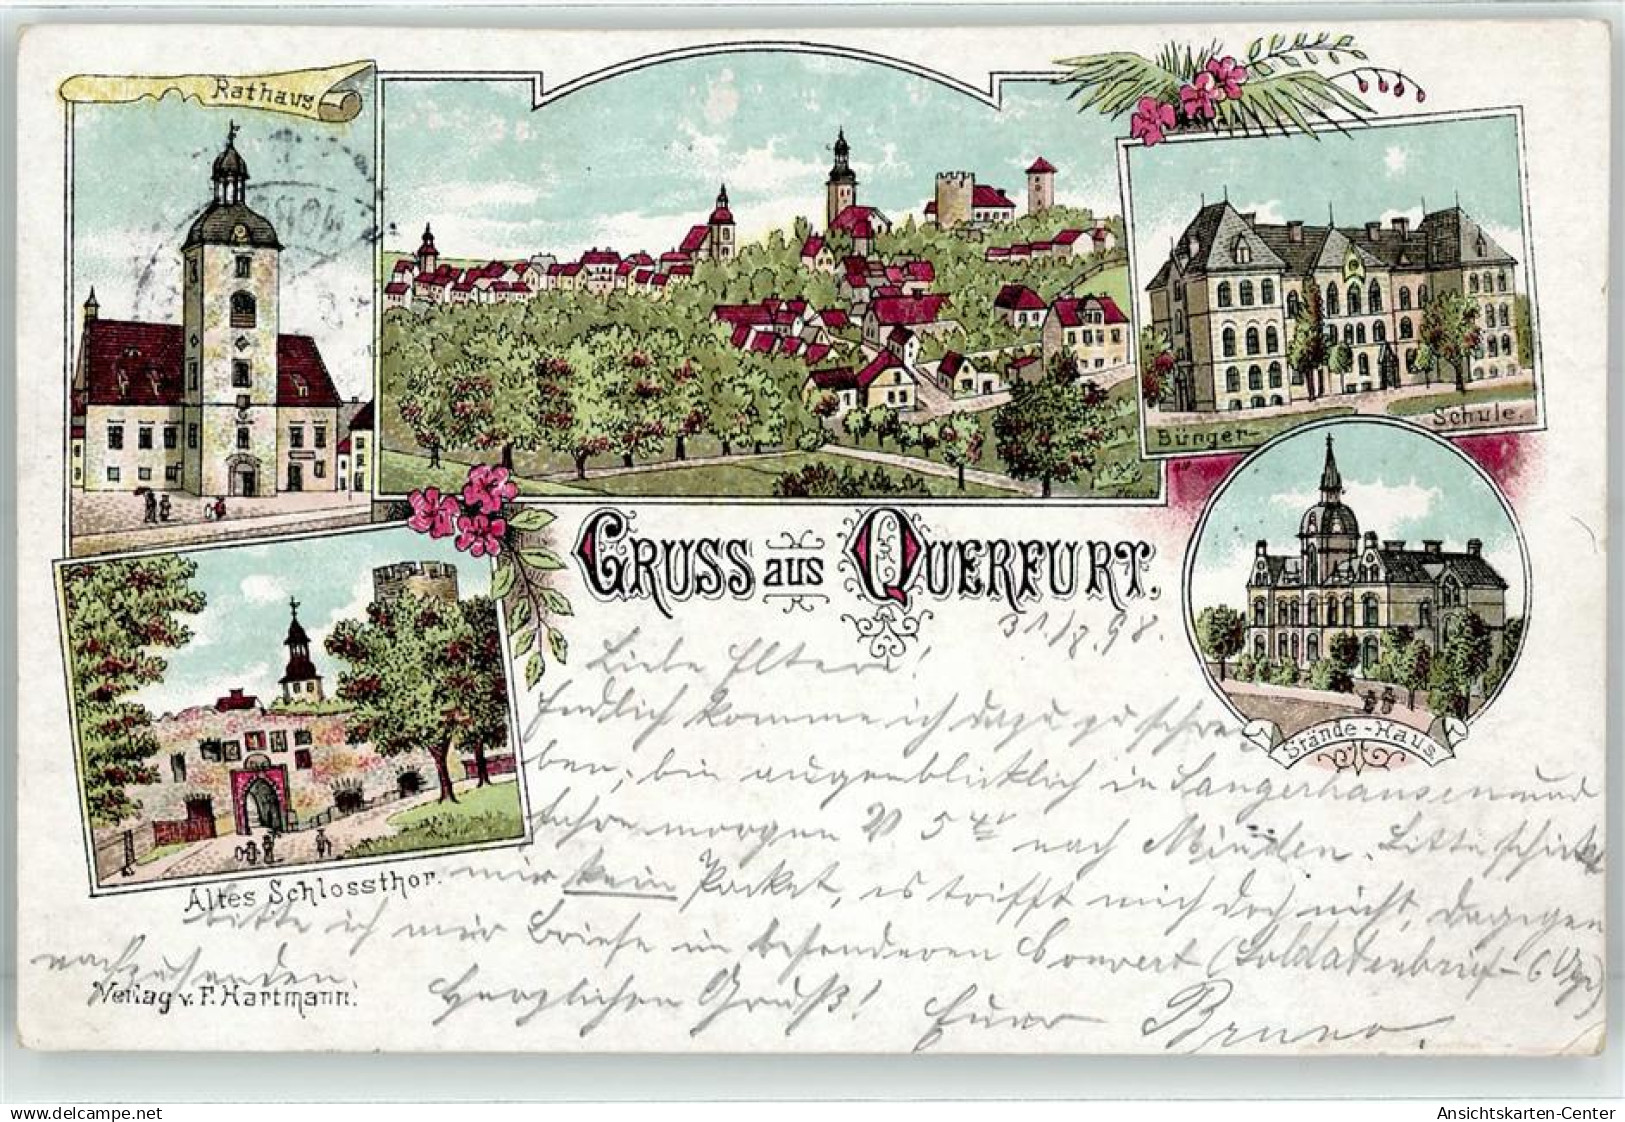 Rathaus
Bürger-
Schule.
Gruss aus Querfurt.
Stände-Haus.
Altes Schlossthor.
Verlag v. F. Hartmann.
31./7.98.
Liebe Eltern!
Endlich komme ich dazu zu schrei
ben, bin augenblicklich in Sangerhausen und
fahre morgen 5 nach Minden. Bitte schickt
mir kein Packet, es trifft mich doch nicht, dagegen
bitte ich mir Briefe im besonderen Couvert (Soldatenbrief-
nachzusenden.
Herzlichen Gruß! Euer Bruno.
Ansichtskarten-Center